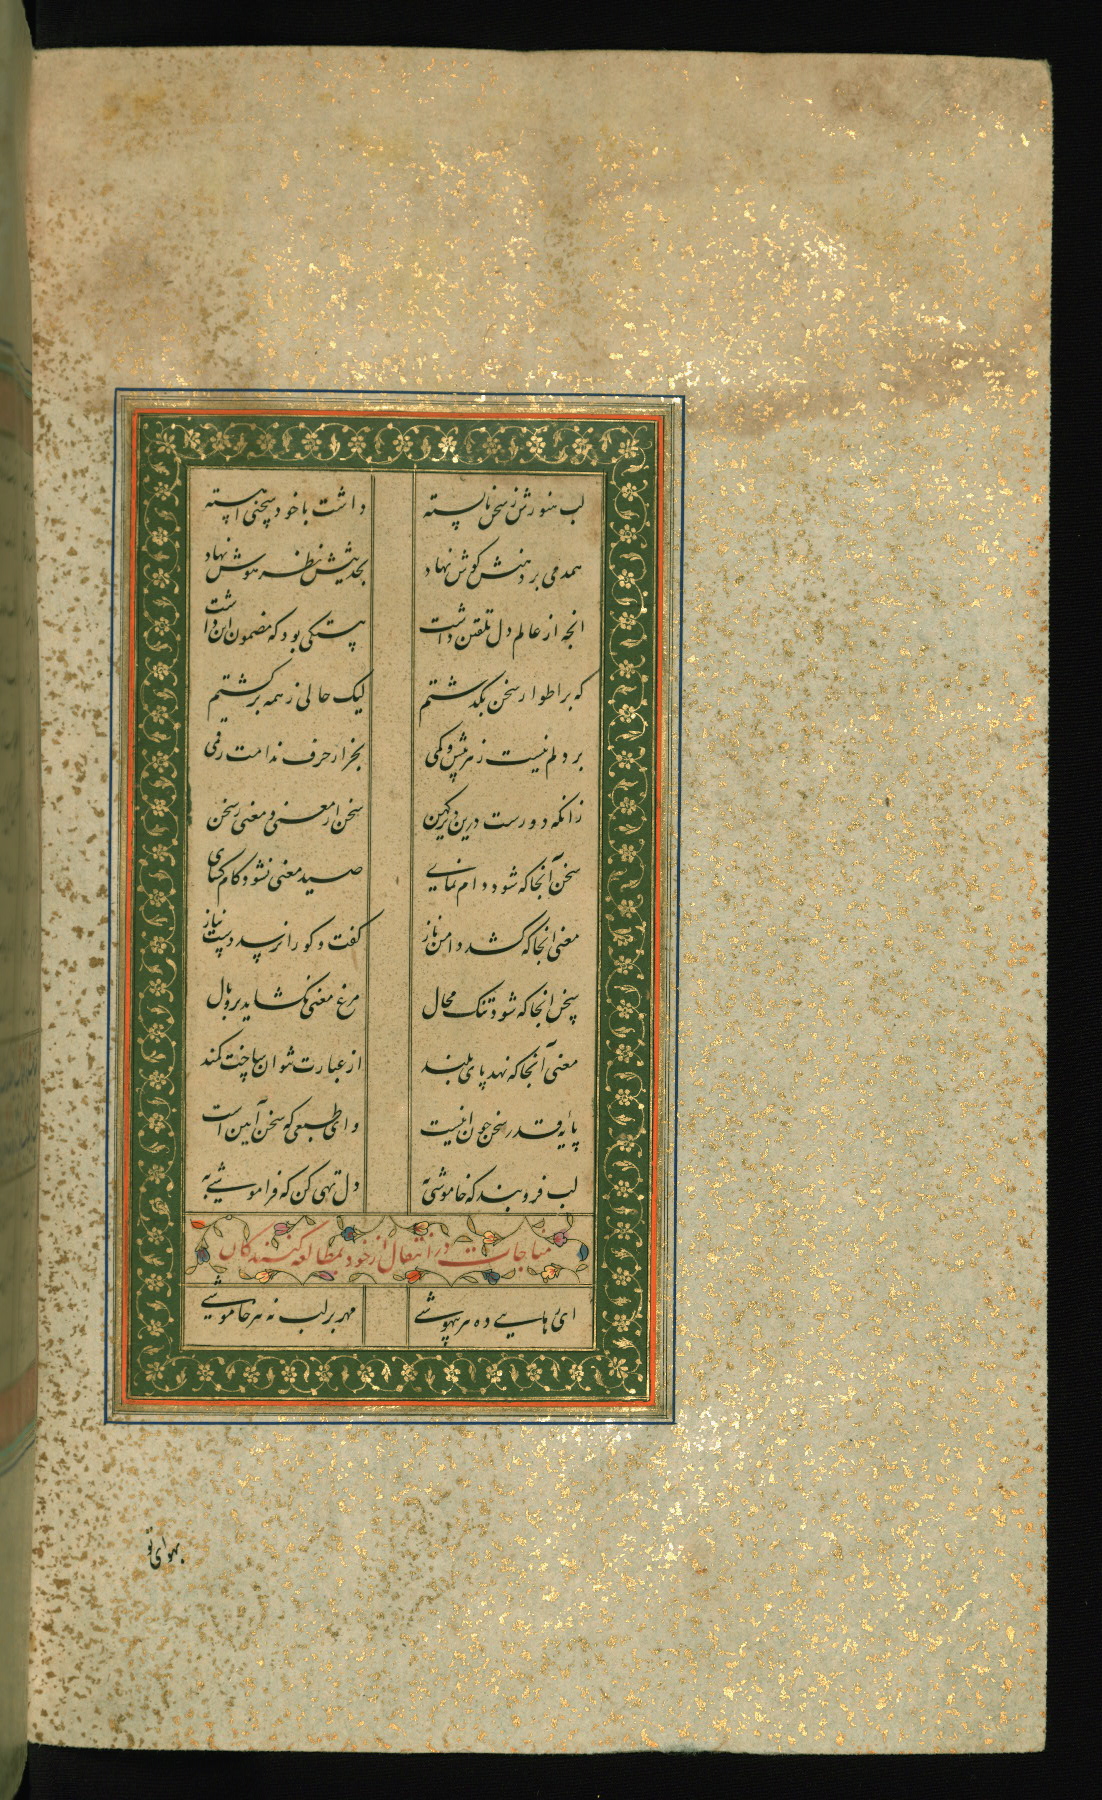 لب هنورش ز سخن نابسته داشت با خود سخنی آهسته
همدمی بر دهنش گوش نهاد بحدیثش نظر هوش نهاد
انچه از عالم دل تلقین داشت بیتکی بود که مضمون این داشت
که بر اطوار سخن بگذشتم لیک حالی ز همه برگشتم
بر دلم نیست ز هر بیش و کمی بجز از حرف ندامت رقمی
زانکه دورست درین دیر کهن سخن از معنی و معنی ز سخن
سخن آنجا که شود دام نمای صید معنی نشود کام گشای
معنی انجا که کشد دامن ناز گفت و گو را نرسد دست نیاز
سخن انجا که شود تنگ مجال مرغ معنی نگشاید پر و بال
معنی آنجا که نهد پای بلند از عبارت نتوان ساخت کمند
پایه قدر سخن چون اینست وای طبعی که سخن آیین است
لب فروبند که خاموشی به دل تهی کن که فراموشی به
مناجات در انتقال از خود بمطالعه کنندگان
ای رهایی ده هر بیهوشی مهر بر لب نه هر خاموشی
بهوای تو